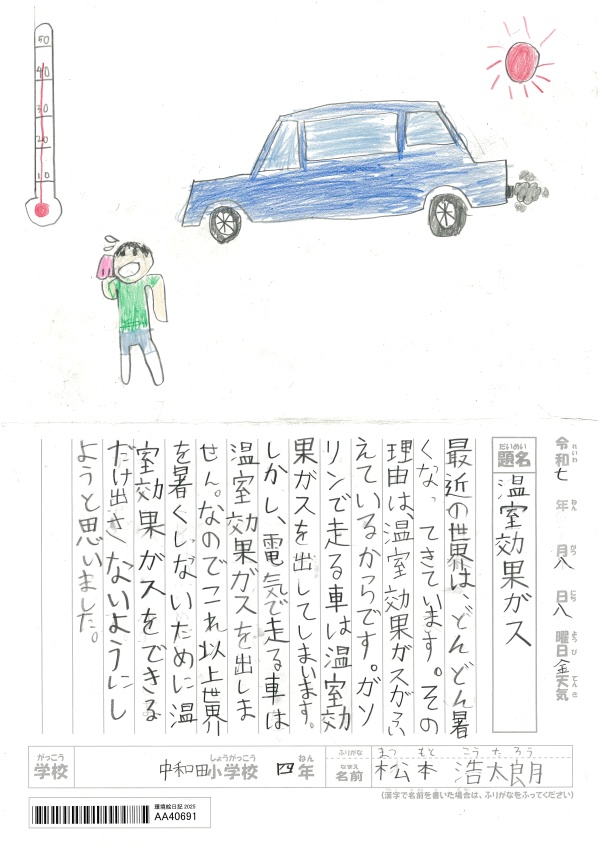 50
40
30
20
10
令和七年八月八日金曜日天気
れいわ ねん がつ にち ようび てんき
だいめい
題名 温室効果ガス
最近の世界は、どんどん暑
くなってきています。その
理由は、温室効果ガスがふ
えているからです。ガソ
リンで走る車は温室効
果ガスを出してしまいます。
しかし、電気で走る車は
温室効果ガスを出しま
せん。なのでこれ以上世界
を暑くしないために温
室効果ガスをできる
だけ出さないようにし
ようと思いました。
がっこう しょうがっこう ねん
学校 中和田小学校 四年
ふりがな まつもと こうたろう
なまえ
名前 松本 浩太朗
(漢字で名前を書いた場合は、ふりがなをふってください)
環境絵日記 2025
AA40691